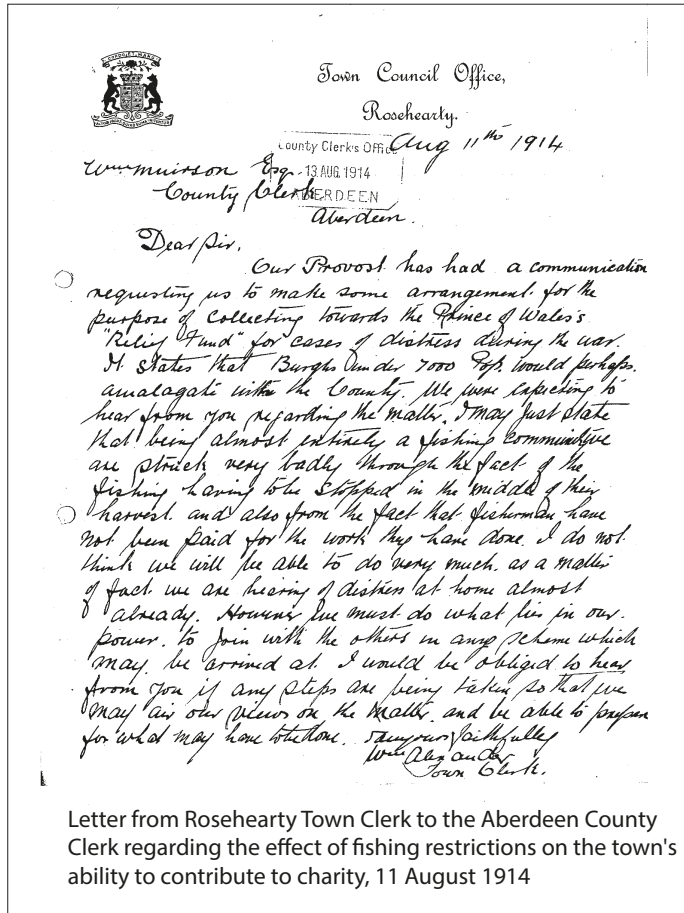 Town Council Office,
Rosehearty.
Aug 11th 1914
County Clerk's Office
13 AUG. 1914
ABERDEEN
Wm Muirson Esq.
County Clerk
Aberdeen.
Dear Sir.
Our Provost has had a communication
requesting us to make some arrangement. for the
purpose of collecting towards the Prince of Wales's
"Relief Fund" for cases of distress during the war.
It states that Burghs under 7000 Pop. would perhaps.
amalagate with the County. We were expecting to
hear from you regarding the matter. I may just state
that being almost entirely a fishing communitive
are struck very badly through the fact of the
fishing having to be stopped in the middle of their
harvest. and also from the fact that fisherman have
not been paid for the work they have done. I do not
think we will be able to do very much. as a matter
of fact. we are hearing of distress at home almost
already. However we must do what lies in our.
power. to join with the others in any scheme which
may. be arrived at. I would be obliged to hear
from you if any steps are being taken so that we
may air our views on the matter. and be able to prepare
for what may have to be done. I am yours faithfully
Wm Alexander
Town Clerk.
Letter from Rosehearty Town Clerk to the Aberdeen County
Clerk regarding the effect of fishing restrictions on the town's
ability to contribute to charity, 11 August 1914